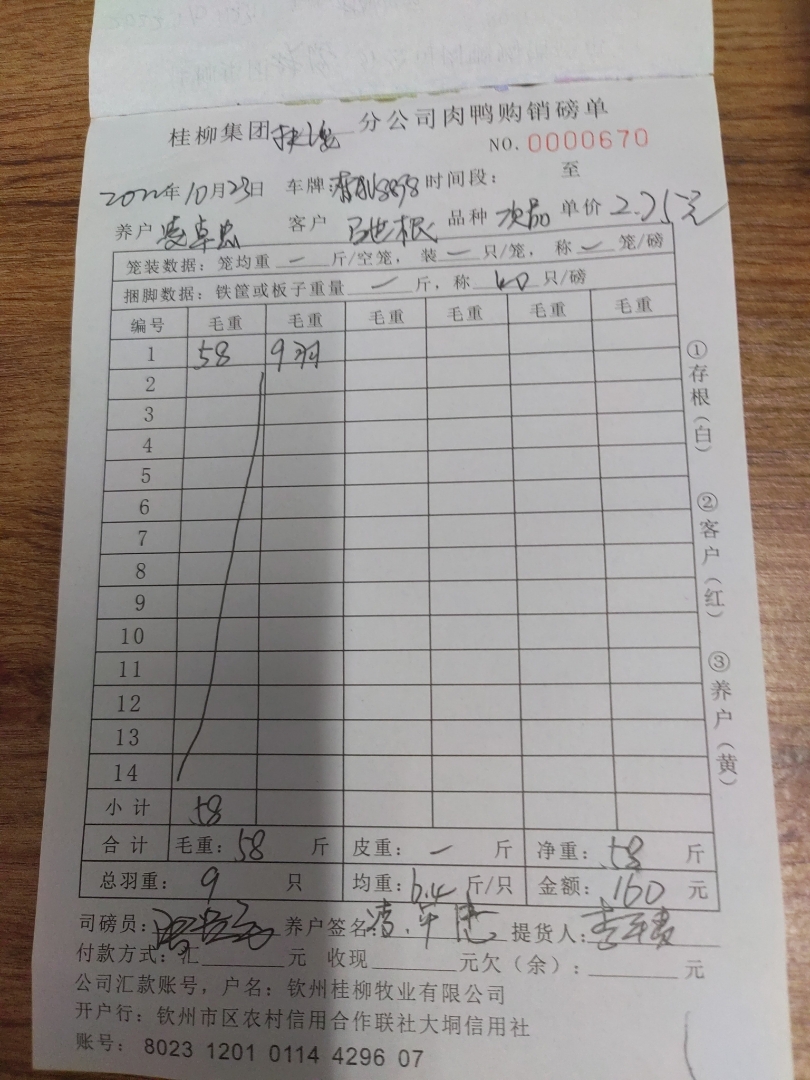 桂柳集团 分公司肉鸭购销磅单
NO. 0000670
2022年10月23日 车牌: 时间段: 至
养户 凌卓忠 客户 品种 次品 单价 2.75元
笼装数据：笼均重 一 斤/空笼，装 一 只/笼，称 一 笼/磅
捆脚数据：铁筐或板子重量 一 斤，称 只/磅
编号 毛重 毛重 毛重 毛重 毛重 毛重
1 58 9羽
2
3
4
5
6
7
8
9
10
11
12
13
14
小计 58
合计 毛重：58 斤 皮重：一 斤 净重：58 斤
总羽重：9 只 均重：6.4 斤/只 金额：160 元
司磅员： 养户签名： 提货人：
付款方式：汇 元 收现 元欠（余）： 元
公司汇款账号，户名：钦州桂柳牧业有限公司
开户行：钦州市区农村信用合作联社大垌信用社
账号： 8023 1201 0114 4296 07
①存根（白）
②客户（红）
③养户（黄）